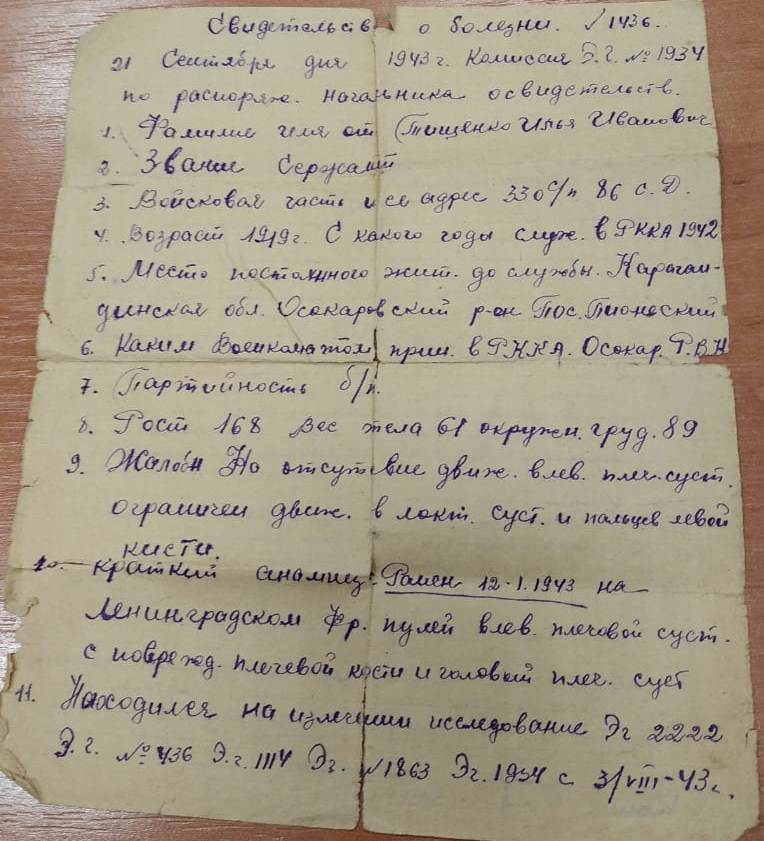 Свидетельств о болезни. №1436.
21 Сентября дня 1943 г. Комиссия Э.Г. №1934
по распоряж. начальника освидетельств.
1. Фамилие имя от (Тищенко Илья Иванович
2. Звание Сержант
3. Войсковая часть и ее адрес 330 с/п 86 с.Д.
4. Возраст 1919 г. С какого годы служ. в РККА 1942
5. Место постоянного жит. до службы. Караган-
динская обл. Осокаровский р-он Пос. Пионеский
6. Каким Военкоматом прин. в РККА. Осокар. Р.В.К
7. Партийность б/п.
8. Рост 168 Вес тела 61 окружн. груд. 89
9. Жалобы На отсутсвие движ. влев. плеч. суст.
ограничен движ. в локт. суст. и пальцев левой
кисти.
10. Краткий анамнез: Ранен 12.1.1943 на
Ленинградском Фр. пулей влев. плечовой суст.
с повреж. плечевой кости и головкы плеч. суст
11. Находился на излечении исследование Эг 2222
Э.г. №436 Э.г. 1114 Эг. №1863 Эг. 1934 с 3/VIII-43 г.